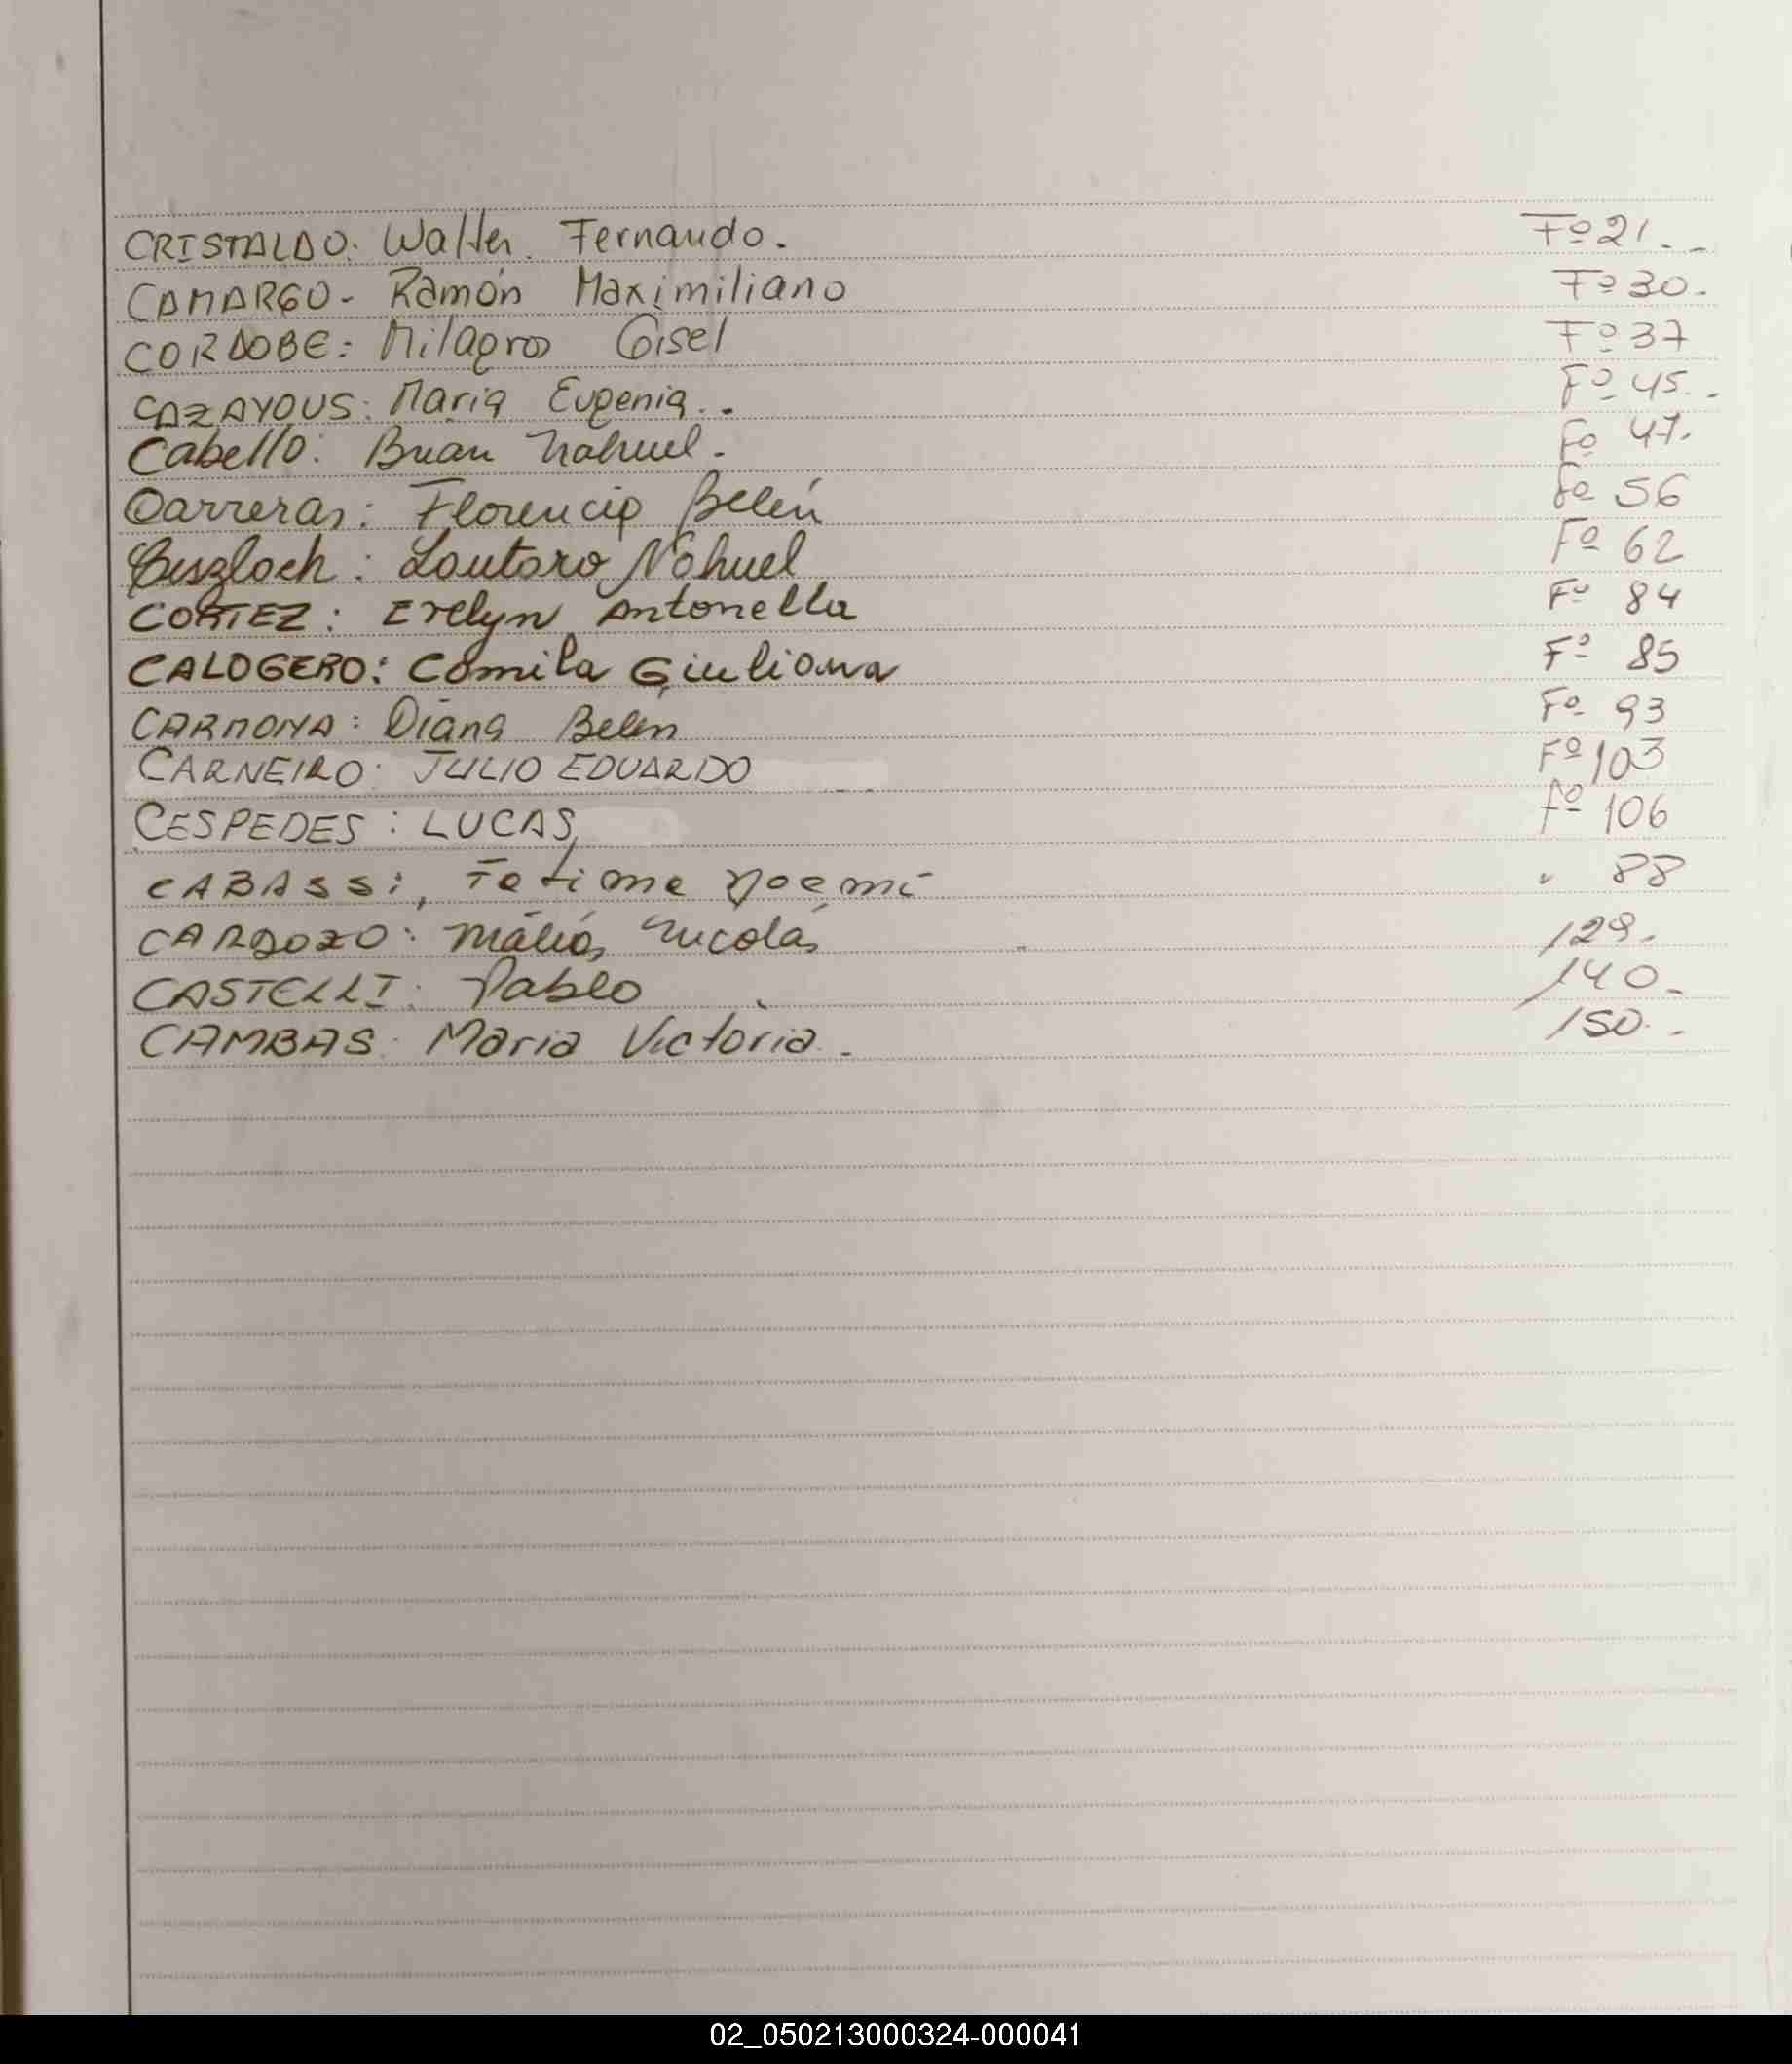 CRISTALDO. Walter. Fernando. Fº 21.-
CAMARGO- Ramón Maximiliano Fº 30.
CORDOBE: Milagros Gisel Fº 37
CAZAYOUS: Maria Eugenia.. Fº 45..
Cabello: Brian Nahuel. Fº 47.
Carreras: Florencia Belén Fº 56
Lautaro Nahuel Fº 62
CORTEZ: Evelyn Antonella Fº 84
CALOGERO: Camila Giuliana Fº 85
CARMONA: Diana Belén Fº 93
CARNEIRO: JULIO EDUARDO Fº 103
CESPEDES: LUCAS Fº 106
CABASSi, Fatima Noemí " 88
CARDOZO: Matías Nicolás 129.
CASTELLI: Pablo 140.-
CAMBAS: Maria Victoria.- 150.-
02_050213000324-000041